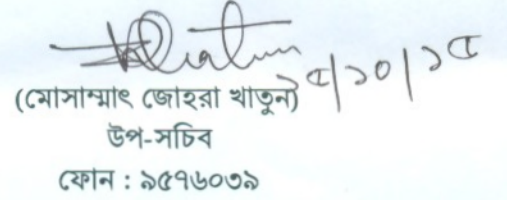 (মোসাম্মাৎ জোহরা খাতুন)
উপ-সচিব
ফোন : ৯৫৭৬০৩৯